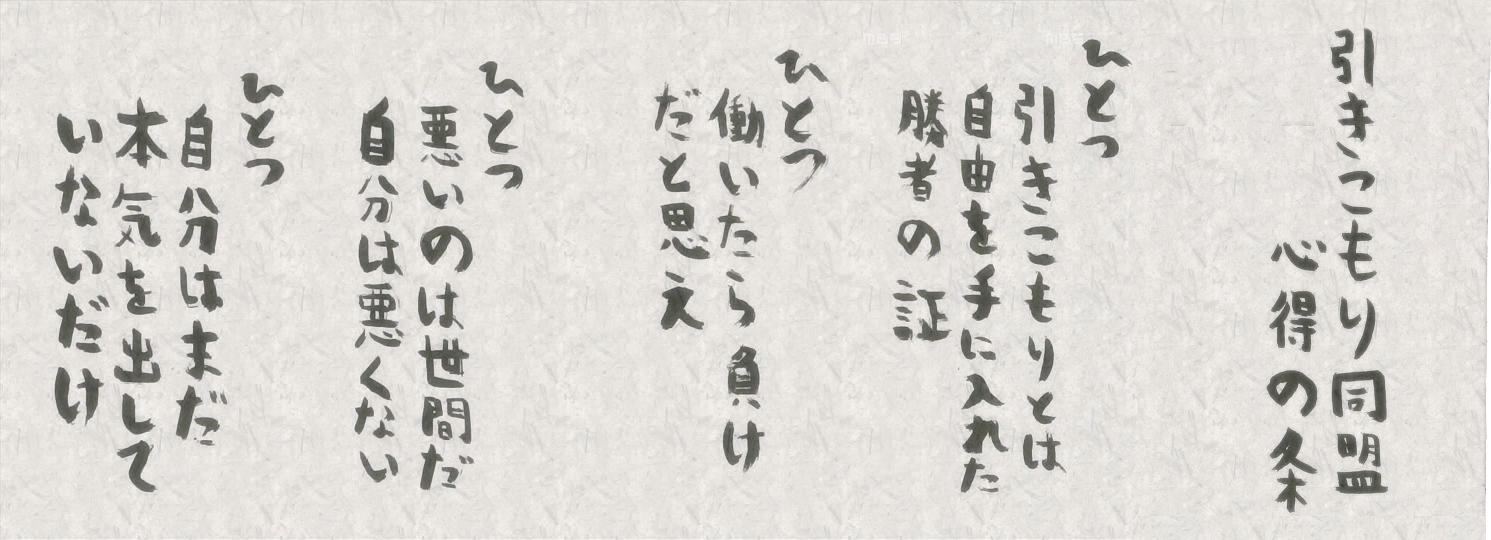 引きこもり同盟
心得の条
ひとつ
引きこもりとは
自由を手に入れた
勝者の証
ひとつ
働いたら負け
だと思え
ひとつ
悪いのは世間だ
自分は悪くない
ひとつ
自分はまだ
本気を出して
いないだけ